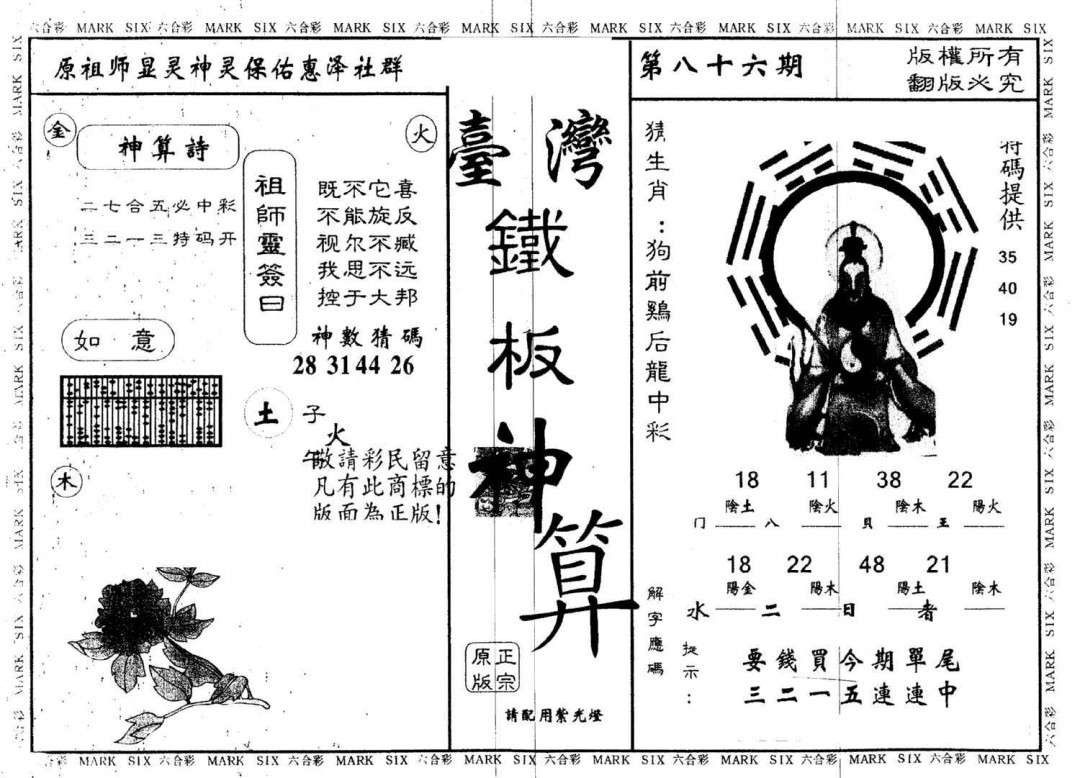 六合彩 MARK SIX 六合彩 MARK SIX 六合彩 MARK SIX 六合彩 MARK SIX 六合彩 MARK SIX 六合彩 MARK SIX 六合彩 MARK SIX 六合彩 MARK SIX
原祖师显灵神灵保佑惠泽社群
金
神算詩
火
二七合五必中彩
三二一三特码开
祖師靈簽曰
既不它喜
不能旋反
视尔不臧
我思不远
控于大邦
神數猜碼
28 31 44 26
如意
土
子
火
午
敬請彩民留意
凡有此商標的
版面為正版!
木
臺灣
鐵板神算
正宗
原版
請配用紫光燈
第八十六期
版權所有
翻版必究
猜生肖:狗前鷄后龍中彩
特碼提供
35
40
19
18 11 38 22
陰土 陰火 陰木 陽火
门 八 貝 王
18 22 48 21
陽金 陽木 陽土 陰木
水 二 日 者
解字應碼
提示:
要錢買今期單尾
三二一五連連中
六合彩 MARK SIX 六合彩 MARK SIX 六合彩 MARK SIX 六合彩 MARK SIX 六合彩 MARK SIX 六合彩 MARK SIX 六合彩 MARK SIX 六合彩 MARK SIX